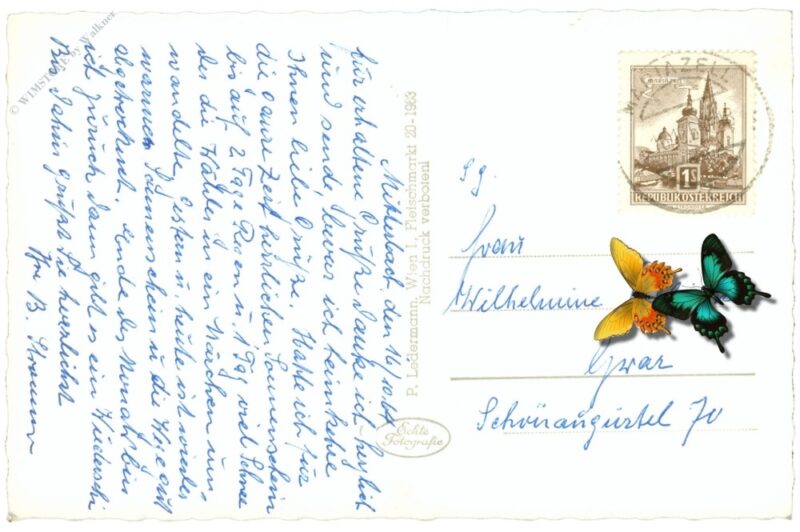 Mitterbach, den 16/10.64
für erhaltene Grüße danke ich herzlich
und sende, bevor ich heimkehre
Ihnen liebe Grüße. Hatte ich für
die ganze Zeit herrlichen Sonnenschein
bis auf 2 Tage Regen u. 1 Tag viel Schnee
der die Hälte in ein Märchen um-
wandelte, gestern u. heute ist wieder
warmer Sonnenschein u. die
abgetrocknet. Ende des Monats bin
ich zurück dann gibt es ein Wiederseh
Bis dahin grüßt Sie herzlichst
Ihre B.
P. Ledermann, Wien I., Fleischmarkt 20-1963
Nachdruck verboten!
Echte
Fotografie
MARIAZELL
1S
REPUBLIK ÖSTERREICH
Frau
Wilhelmine
Graz
Schönaugürtel 70
© WIMSTORE by Walkner